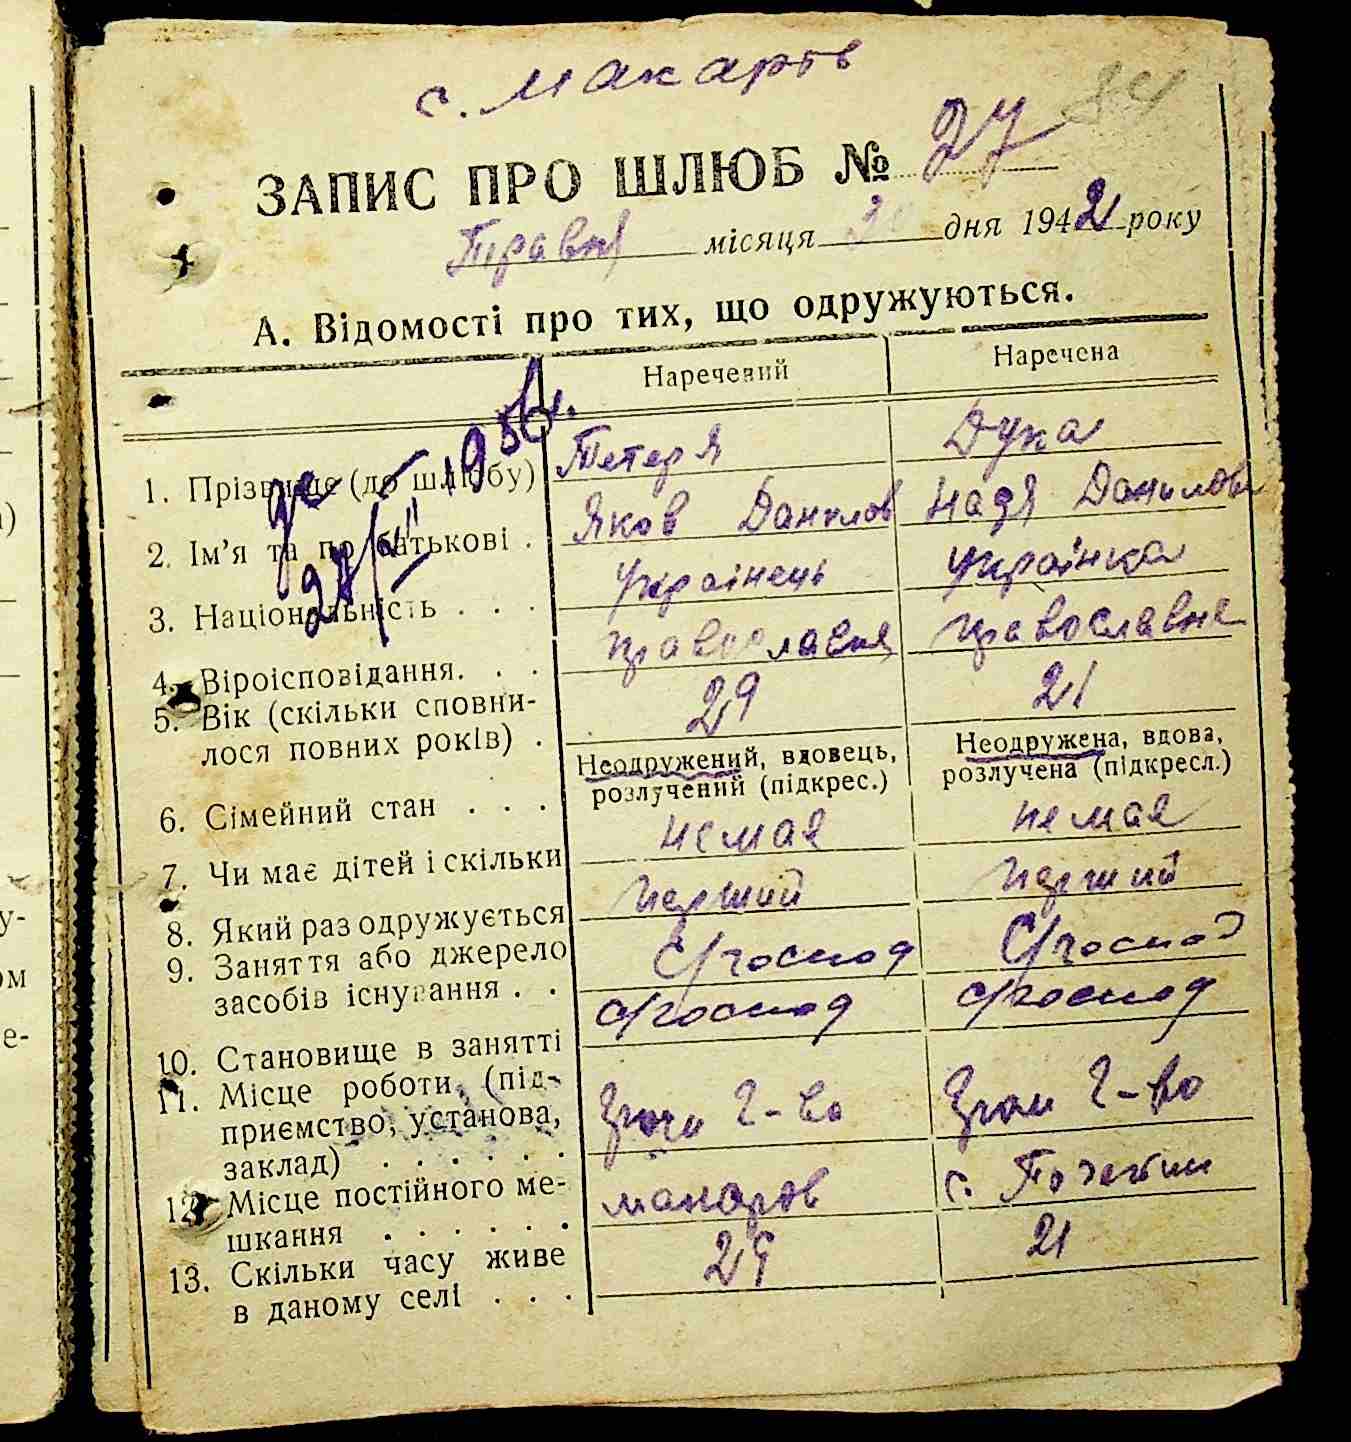 с. Макарів
84
ЗАПИС ПРО ШЛЮБ № 27
Травня місяця 30 дня 1942 року
А. Відомості про тих, що одружуються.
Наречений Наречена
1. Прізвище (до шлюбу) Тетеря Дука
2. Ім'я та по батькові . Яков Данилов Надя Данилов
3. Національність . . . Українець Українка
4. Віроісповідання. . . православня православне
5. Вік (скільки сповни-
лося повних років) . 29 21
Неодружений, вдовець, Неодружена, вдова,
розлучений (підкрес.) розлучена (підкресл.)
6. Сімейний стан . . .
7. Чи має дітей і скільки немая немая
8. Який раз одружується перший перший
9. Заняття або джерело
засобів існування . . С/господ С/господ
10. Становище в занятті с/господ с/господ
11. Місце роботи, (під-
приємство, установа,
заклад) . . . . . . Гром г-во Гром г-во
12. Місце постійного ме-
шкання . . . . . . макаров с.
13. Скільки часу живе
в даному селі . . . 29 21